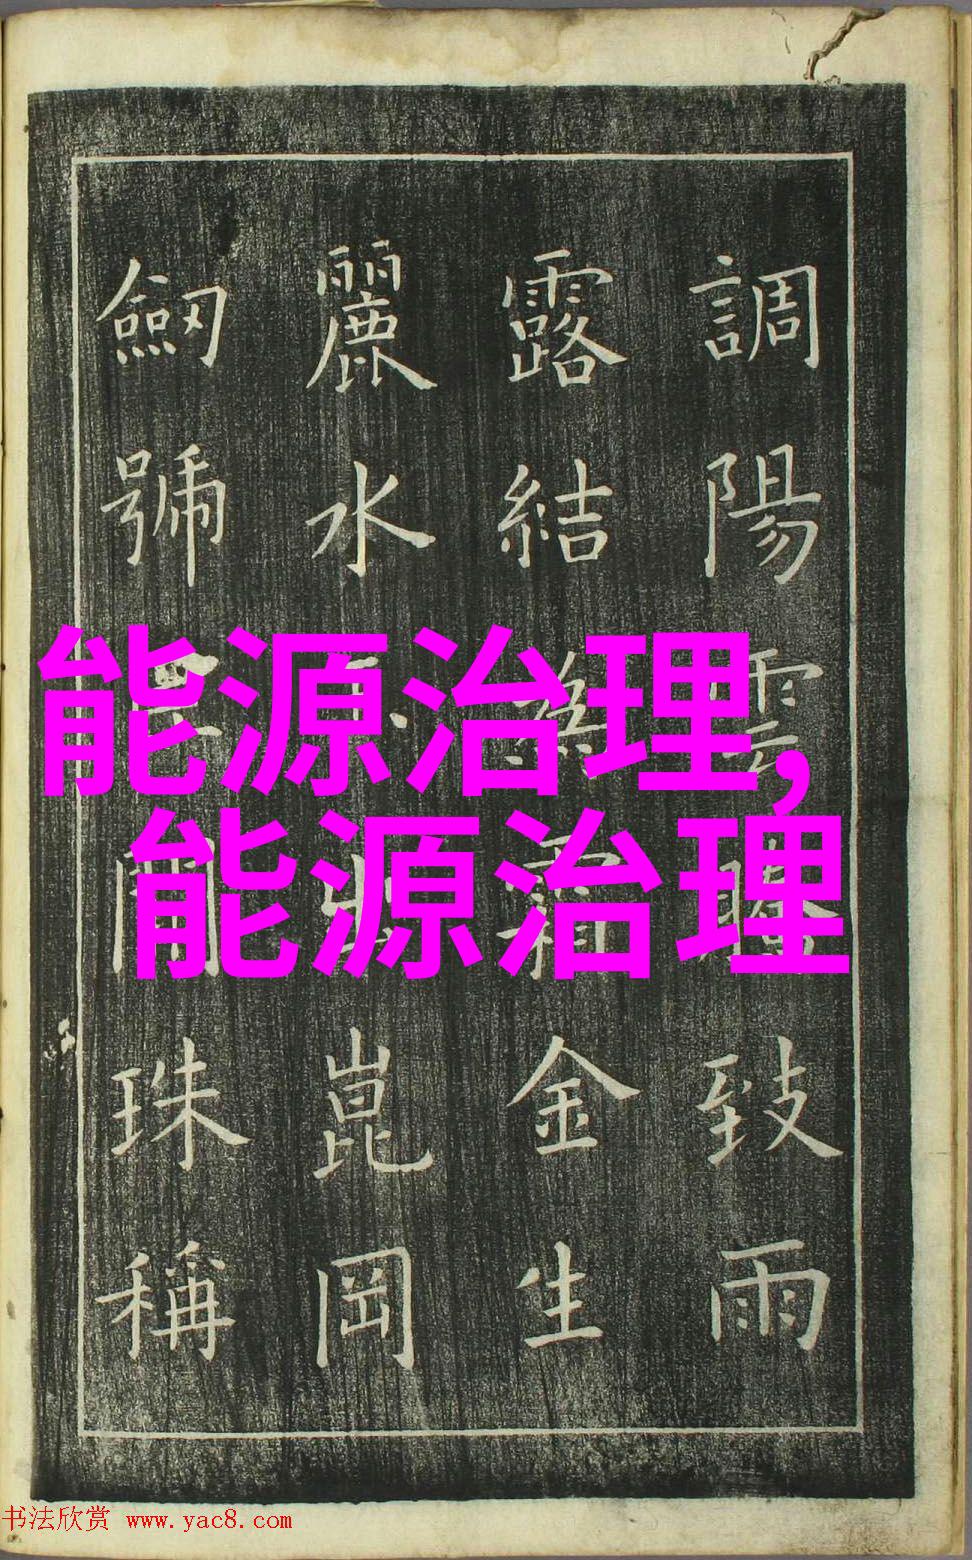 調陽雲致雨
露結霜金生
麗水崑岡
劒號珠稱
能源治理,
能源治理
书法欣赏 www.yac8.com